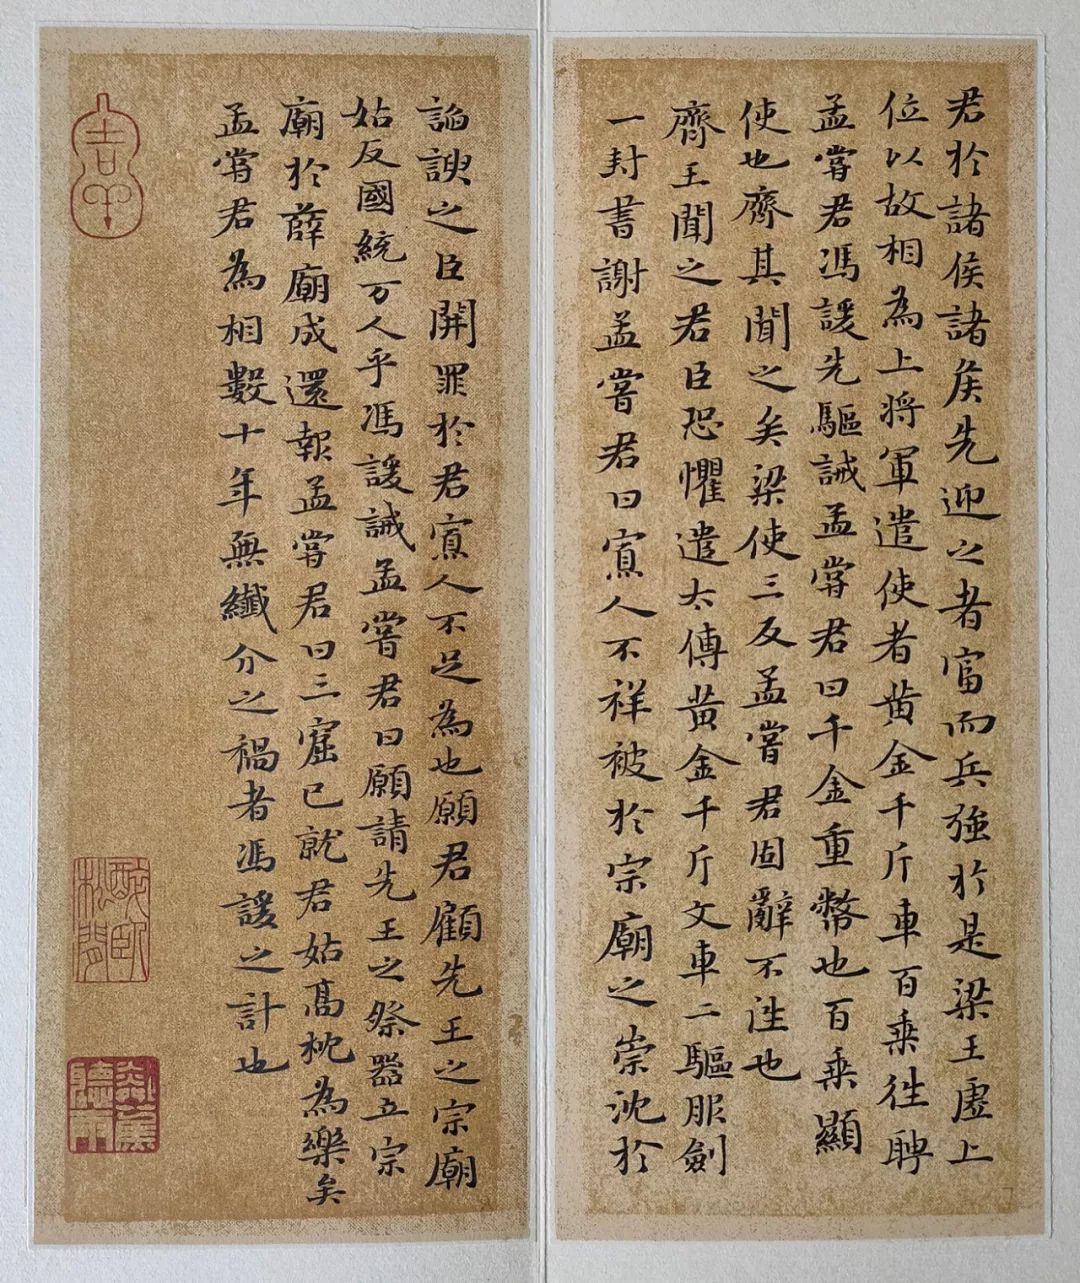 君於諸侯諸侯先迎之者富而兵強於是梁王虛上
位以故相為上將軍遣使者黃金千斤車百乘往聘
孟嘗君馮諼先驅誡孟嘗君曰千金重幣也百乘顯
使也齊其聞之矣梁使三反孟嘗君固辭不往也
齊王聞之君臣恐懼遣太傅黃金千斤文車二驅服劍
一封書謝孟嘗君曰寡人不祥被於宗廟之祟沈於
諂諛之臣開罪於君寡人不足為也願君顧先王之宗廟
姑反國統万人乎馮諼誡孟嘗君曰願請先王之祭器立宗
廟於薛廟成還報孟嘗君曰三窟已就君姑高枕為樂矣
孟嘗君為相數十年無纖介之禍者馮諼之計也
醉臥松間